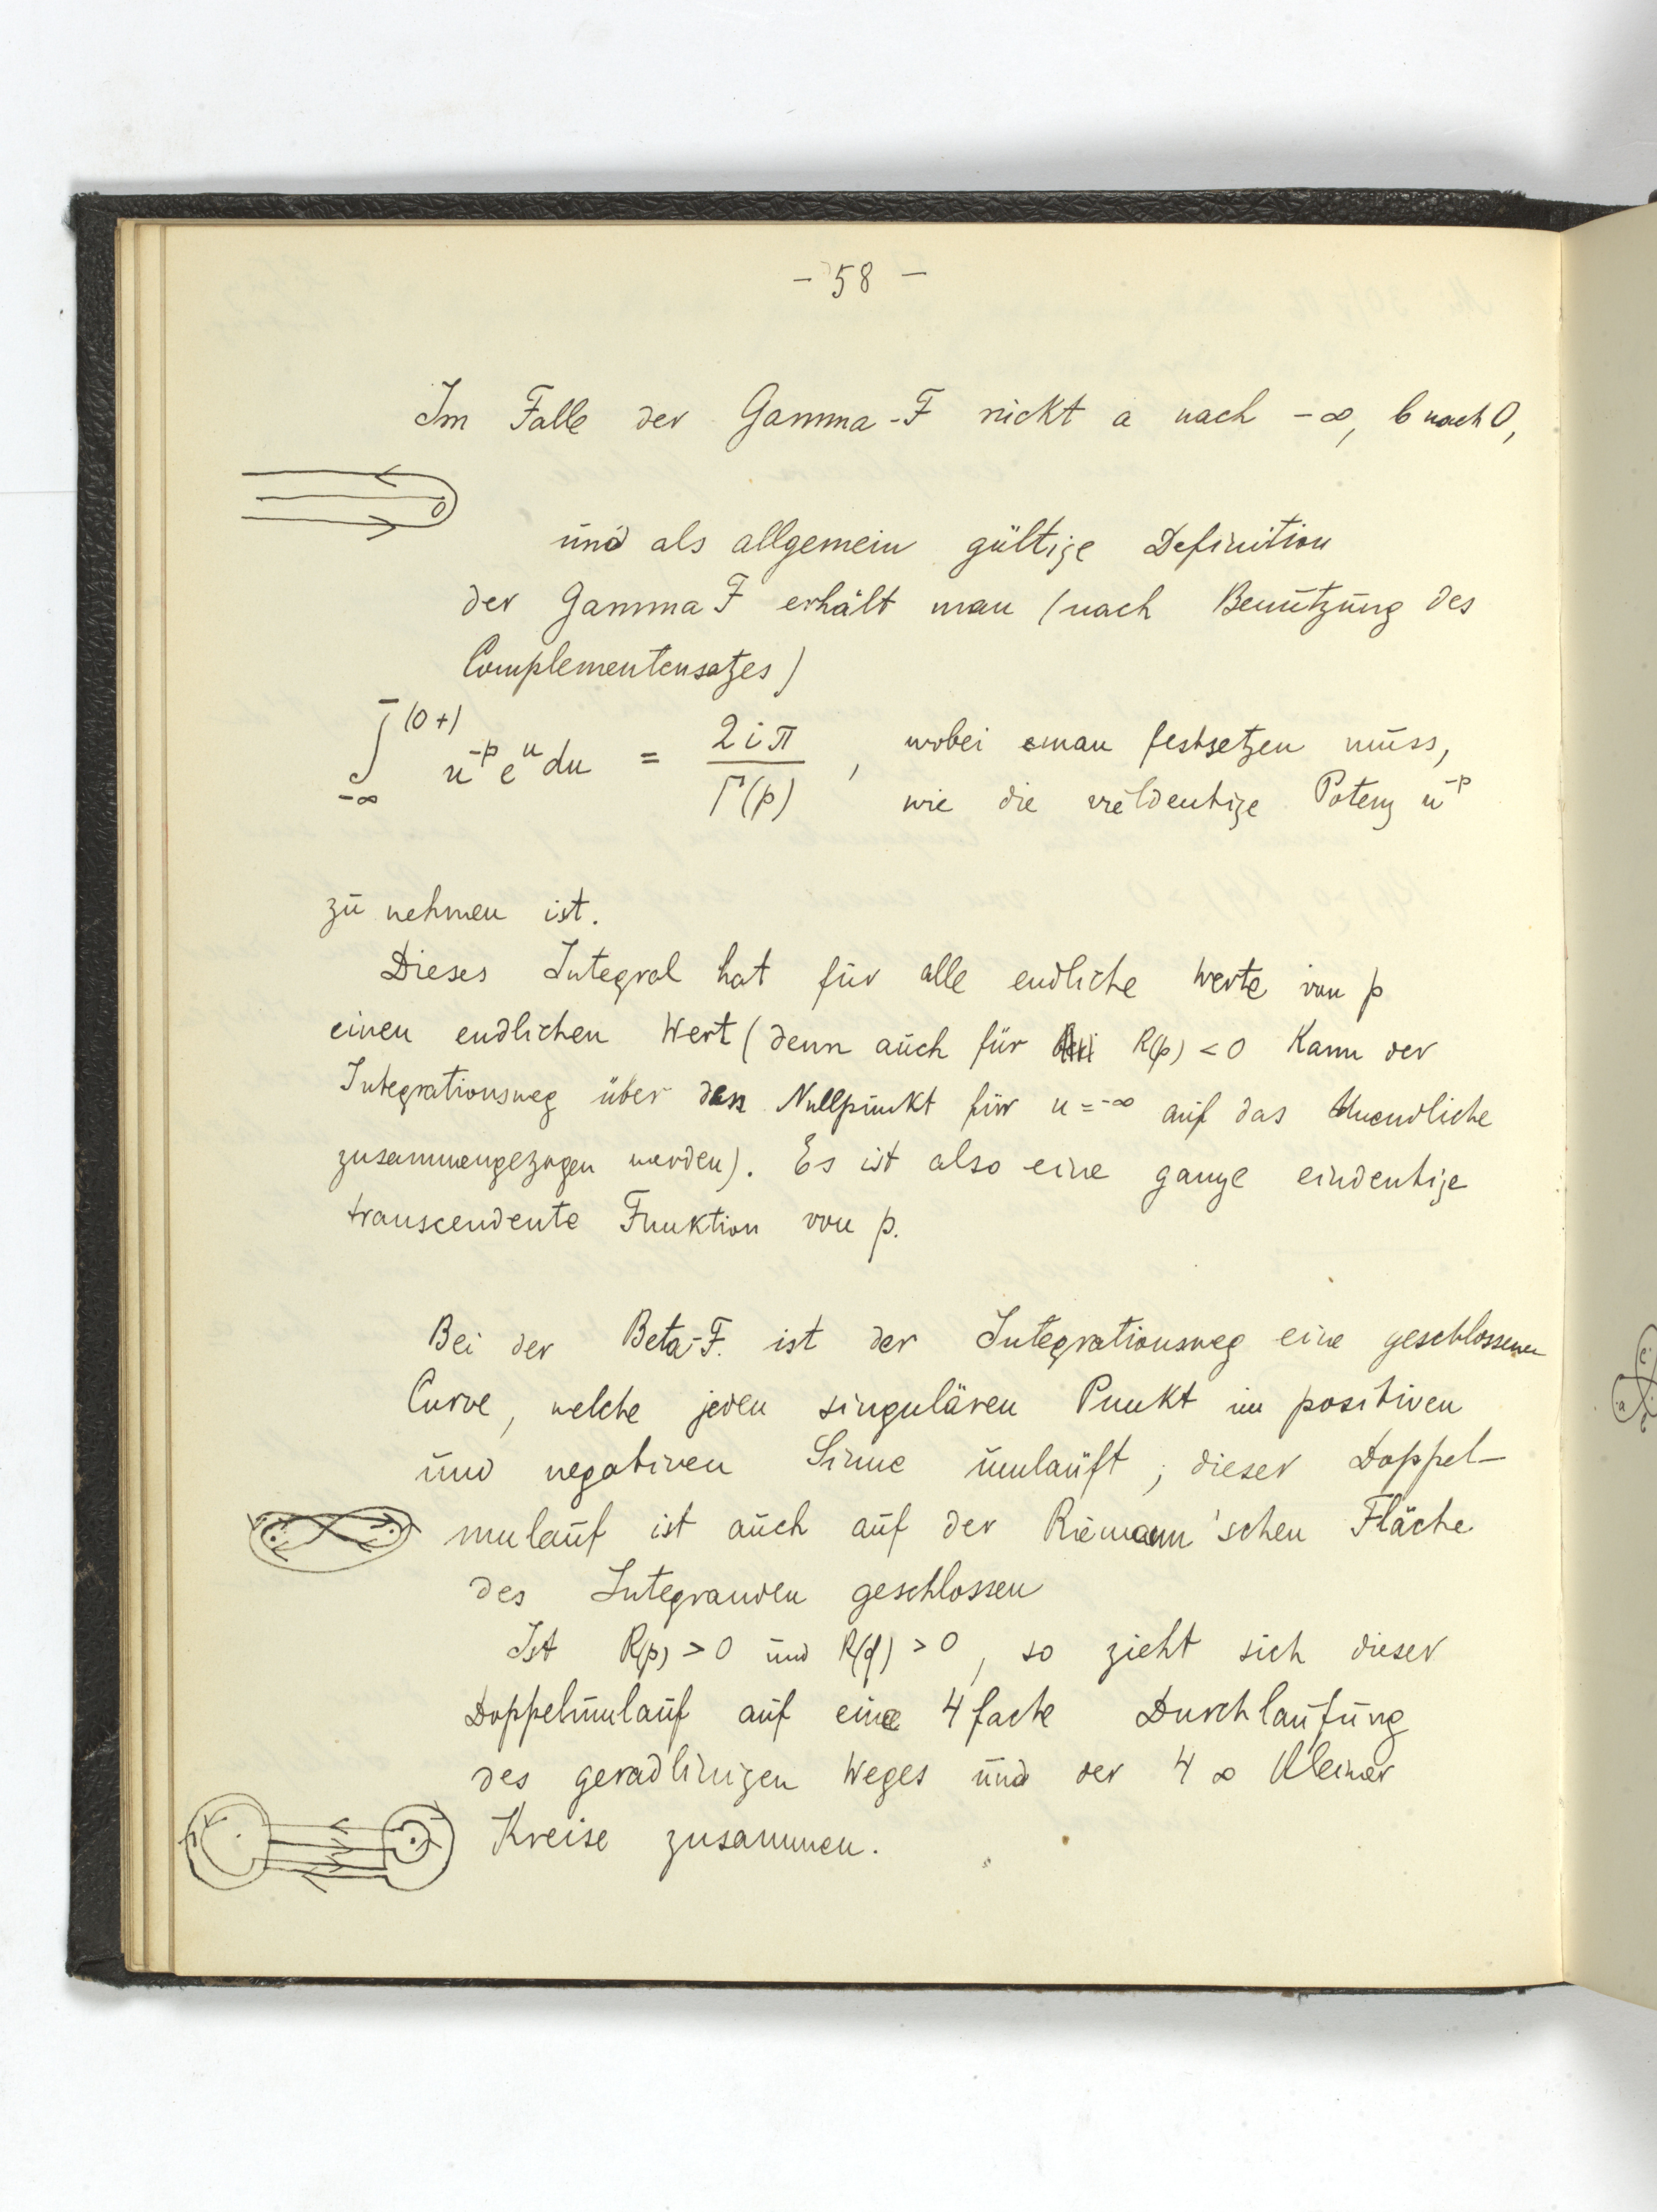 - 58 -
Im Falle der Gamma-F rückt a nach -∞, b nach 0,
und als allgemein gültige Definition
der Gamma F erhält man (nach Benützung des
Complementensatzes)
∫_{-∞}^{(0+)} u^{-p} e^u du = 2iπ / Γ(p) , wobei man festsetzen muss,
wie die vieldeutige Potenz u^{-p}
zu nehmen ist.
Dieses Integral hat für alle endliche Werte von p
einen endlichen Wert (denn auch für R(p) < 0 kann der
Integrationsweg über den Nullpunkt für u = -∞ auf das Unendliche
zusammengezogen werden). Es ist also eine ganze eindeutige
transcendente Funktion von p.
Bei der Beta-F. ist der Integrationsweg eine geschlossene
Curve, welche jeden singulären Punkt im positiven
und negativen Sinne umläuft; dieser Doppel-
umlauf ist auch auf der Riemann'schen Fläche
des Integranden geschlossen
Ist R(p) > 0 und R(q) > 0, so zieht sich dieser
Doppelumlauf auf eine 4 fache Durchlaufung
des geradlinigen Weges und der 4 ∞ kleiner
Kreise zusammen.